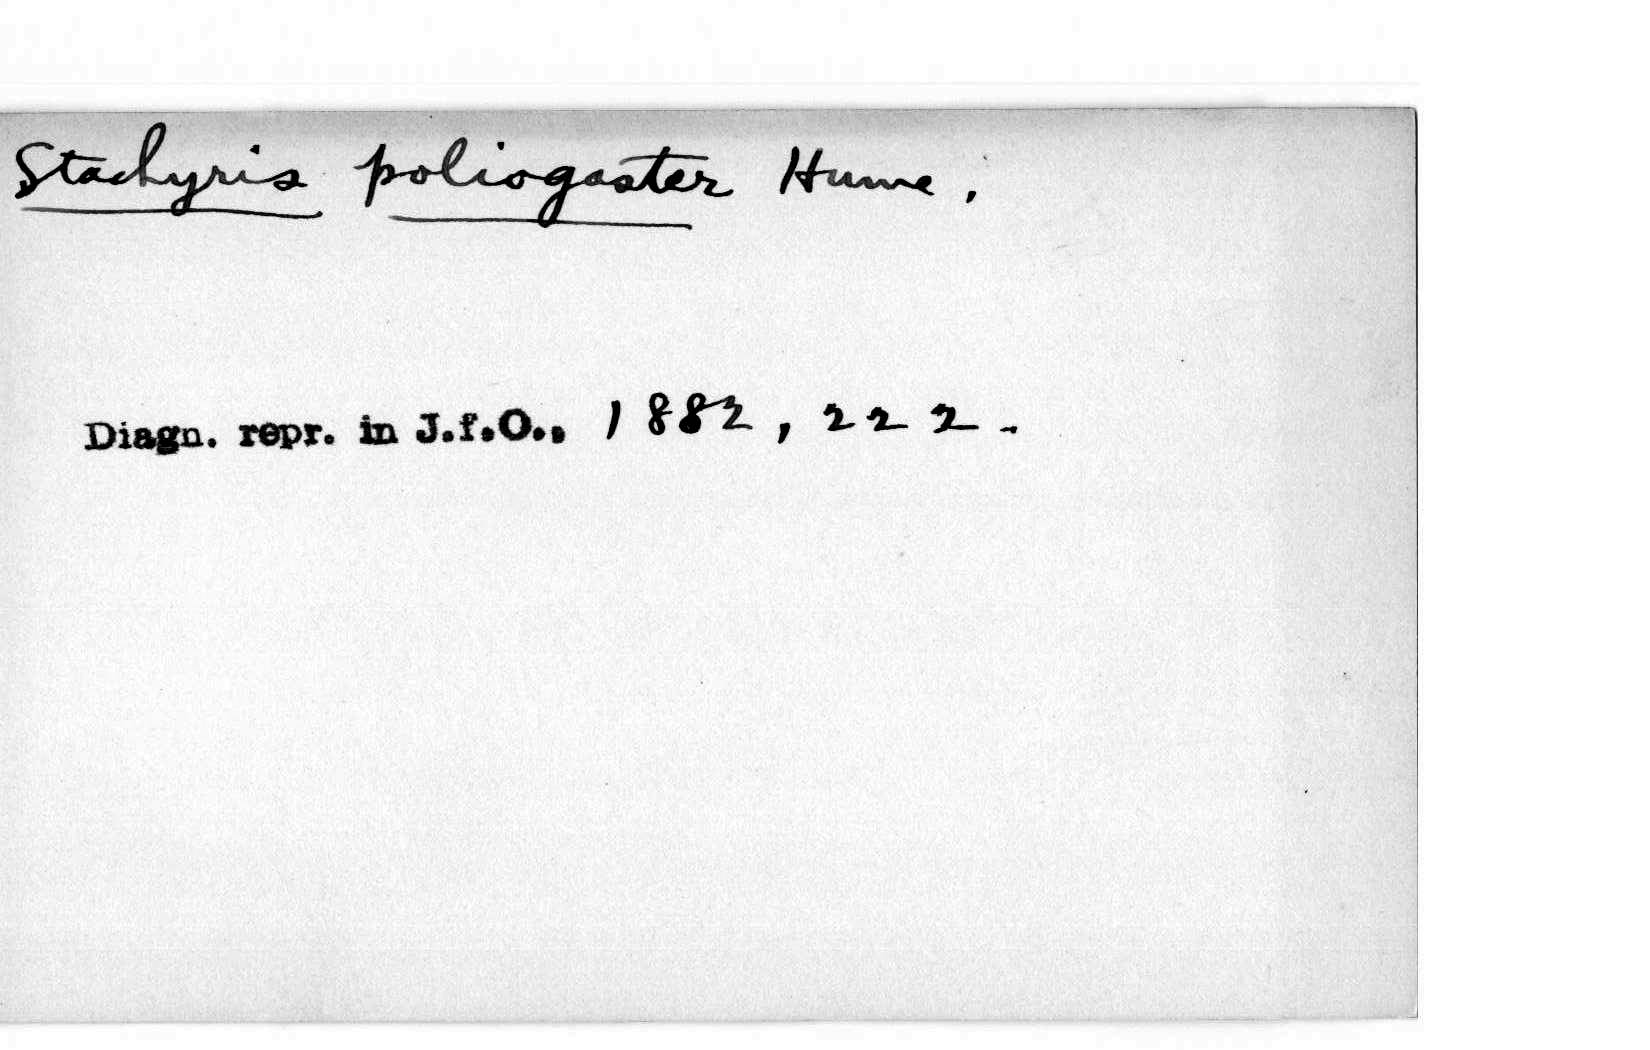 Stachyris poliogaster Hume.
Diagn. repr. in J.f.O., 1882, 222.